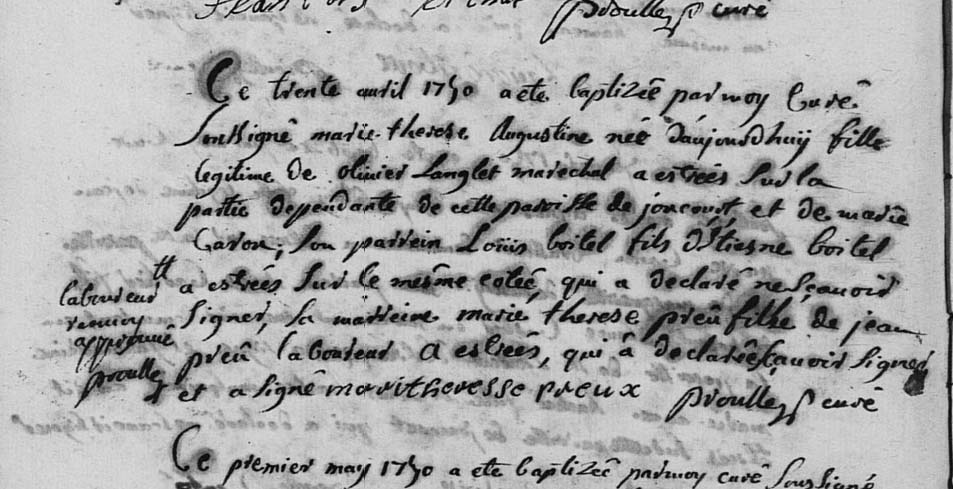 proulle p curé
Ce trente avril 1750 a eté baptizée par moy Curé
Soussigné marie therese Augustine née d'aujourdhuy fille
legitime de olivier Langlet marechal a estrées sur la
partie dependante de cette paroisse de joncourt et de marie
Caron, son parrein Loüis boitel fils d'Etiesne boitel
tt a estrées sur le même coteé, qui a declaré ne sçavoir
laboureur
renvoy
approuvé
proulle
signer, sa marreine marie therese preû fille de jean
preû laboureur a estrées, qui â declarée sçavoir signer
et a signé maritheresse preux proulle p curé
Ce premier may 1750 a eté baptizée par moy curé soussigné